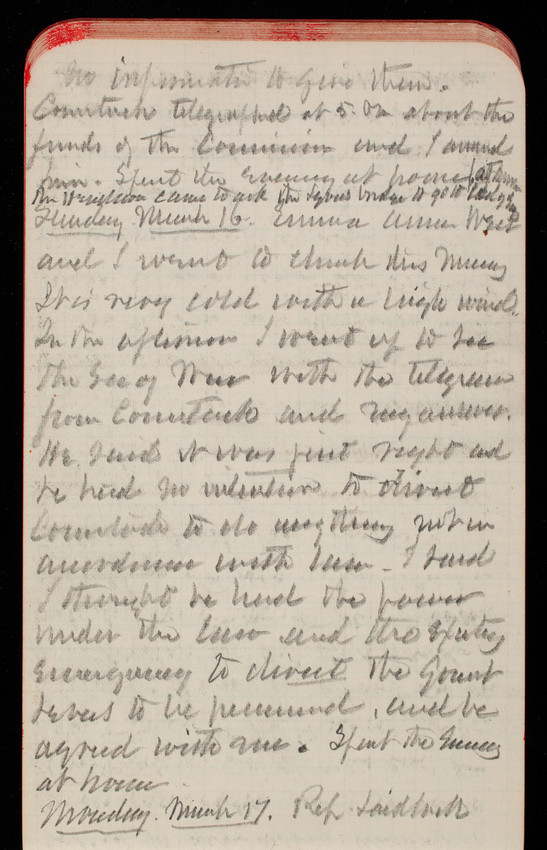 no information to give them.
Comstock telegraphed at 5. Ok about the
funds of the Commission and I answered
him. Spent the evening at home
came to ask the to go to
Sunday March 16. Emma Anna
and I went to church this Morning
It is very cold with a high wind.
In the afternoon I went up to see
the Sec of War with the telegram
from Comstock and my answer.
He said it was just right and
he had no intention to direct
Comstock to do anything not in
accordance with law - I said
I thought he had the power
under the law and the existing
Emergency to direct the Gov't
levees to be , and he
agreed with me. Spent the Evening
at home
Monday. March 17. Rep